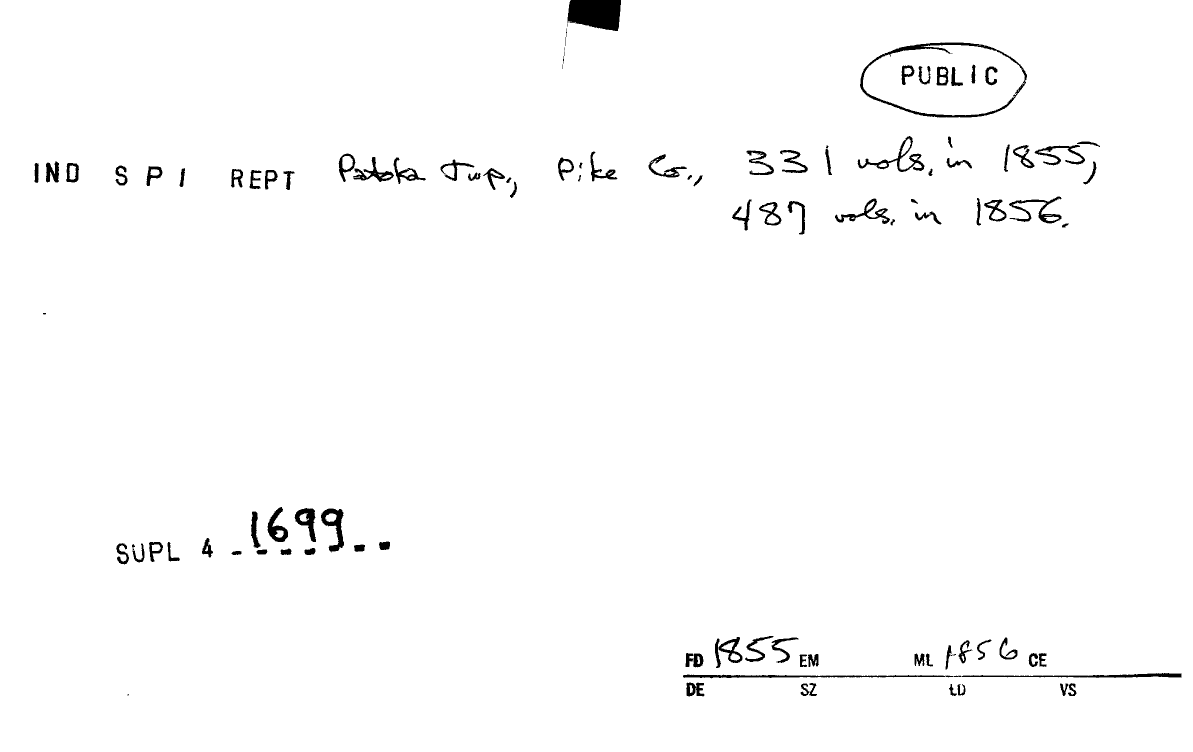 PUBLIC
IND S P I REPT Patoka Twp., Pike Co., 331 vols. in 1855,
487 vols. in 1856.
SUPL 4 1699
FD 1855 EM ML 1856 CE
DE SZ LD VS